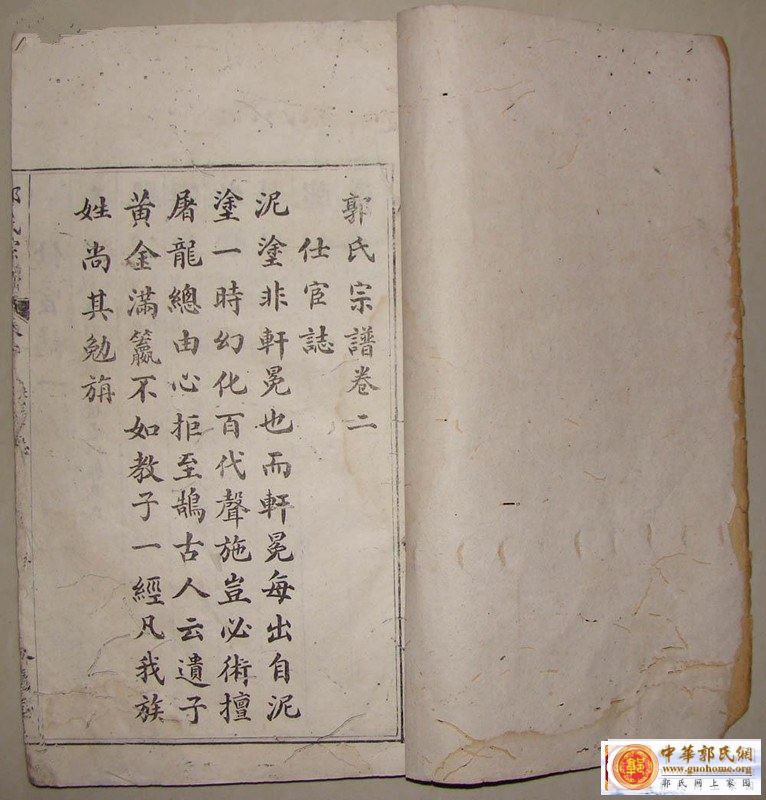 郭氏宗譜卷二
仕宦誌
泥塗非軒冕也而軒冕每出自泥
塗一時幻化百代聲施豈必術擅
屠龍總由心拒至鵠古人云遺子
黃金滿籯不如教子一經凡我族
姓尚其勉旃
中華郭氏網
www.guohome.org
郭氏網上家園